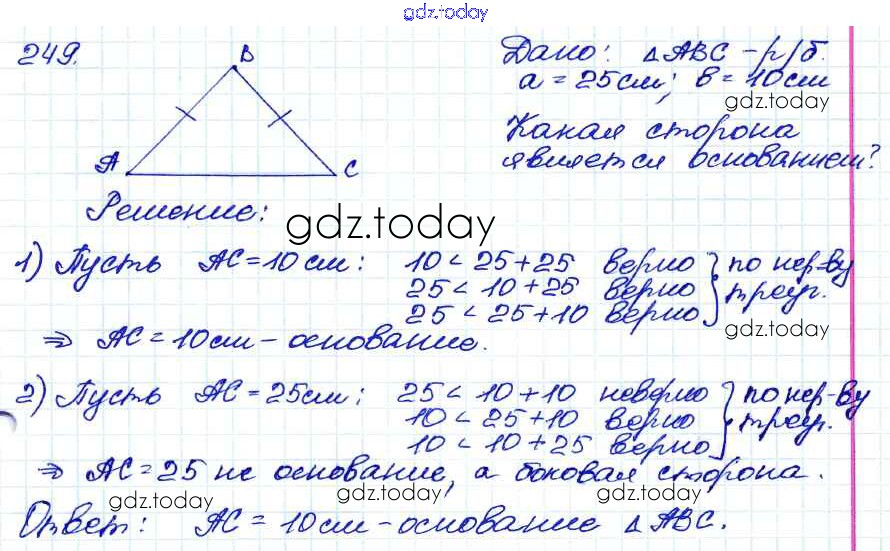 gdz.today
249.
B
A
C
Дано: △ABC – р/б.
a = 25см; в = 10см
gdz.today
Какая сторона
является основанием?
Решение:
gdz.today
1) Пусть AC = 10см: 10 < 25 + 25 верно } по нер-ву
25 < 10 + 25 верно треуг.
25 < 25 + 10 верно
gdz.today
⇒ AC = 10см – основание.
2) Пусть AC = 25см: 25 < 10 + 10 неверно } по нер-ву
10 < 25 + 10 верно треуг.
10 < 10 + 25 верно
gdz.today
⇒ AC = 25 не основание, а боковая сторона.
gdz.today gdz.today gdz.today
Ответ: AC = 10см – основание △ABC.